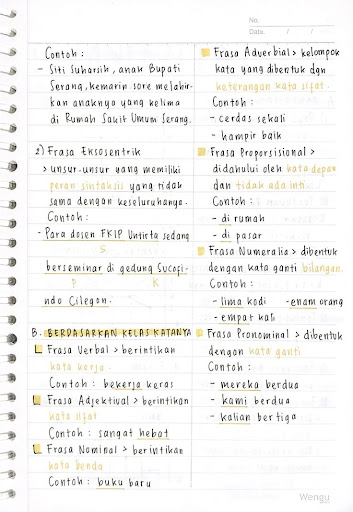 No.
Date. / /
Contoh :
- Siti Suharsih, anak Bupati
Serang, kemarin sore melahir-
kan anaknya yang kelima
di Rumah Sakit Umum Serang.
2) Frasa Eksosentrik
> unsur-unsur yang memiliki
peran sintaksis yang tidak
sama dengan keseluruhanya.
Contoh :
- Para dosen FKIP Untirta sedang
S
berseminar di gedung Sucofi-
P K
ndo Cilegon.
B. BERDASARKAN KELAS KATANYA
Frasa Verbal > berintikan
kata kerja.
Contoh : bekerja keras
Frasa Adjektival > berintikan
kata sifat
Contoh : sangat hebat
Frasa Nominal > berintikan
kata benda
Contoh : buku baru
Frasa Adverbial > kelompok
kata yang dibentuk dgn
keterangan kata sifat.
Contoh :
- cerdas sekali
- hampir baik
Frasa Proporsisional >
didahului oleh kata depan
dan tidak ada inti.
Contoh :
- di rumah
- di pasar
Frasa Numeralia > dibentuk
dengan kata ganti bilangan.
Contoh :
- lima kodi - enam orang
- empat kali
Frasa Pronominal > dibentuk
dengan kata ganti
Contoh :
- mereka berdua
- kami berdua
- kalian bertiga
Wengu